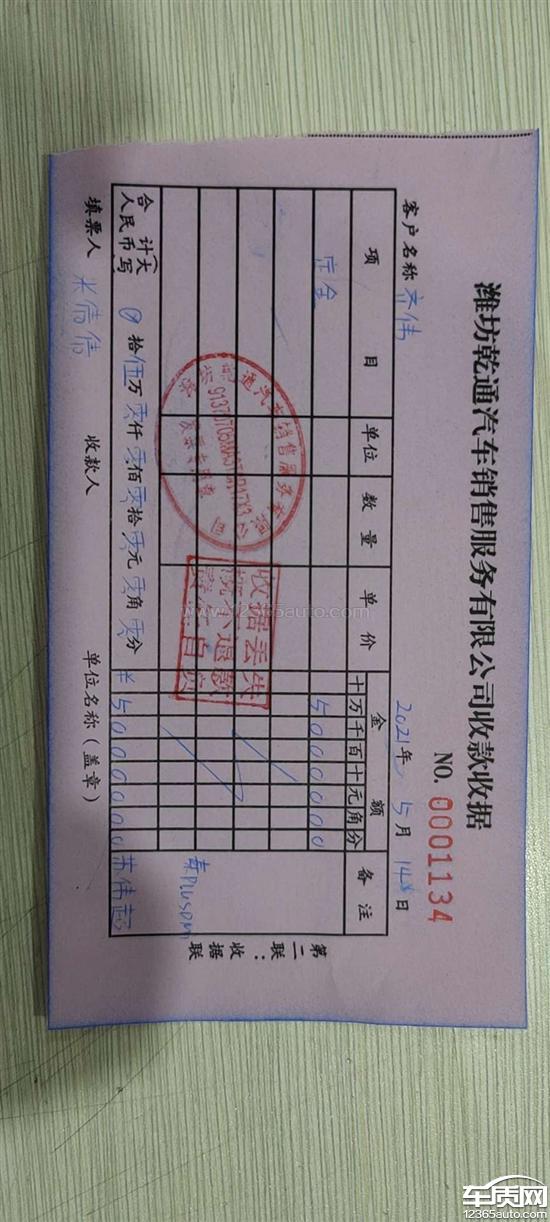 潍坊乾通汽车销售服务有限公司收款收据
NO. 0001134
客户名称 齐伟 2021年 5月 14日
项目 单位 数量 单价 金额 备注
十万千百十元角分
定金 5000000
秦PLUSDMI
合计(大写)人民币 0拾伍万零仟零佰零拾零元零角零分 ¥5000000 苏伟超
填票人 收款人 单位名称(盖章)
第二联:收据联
通汽车销售服务有限公司
发票专用章
收据丢失
概不退款
www.12365auto.com
车质网
12365auto.com